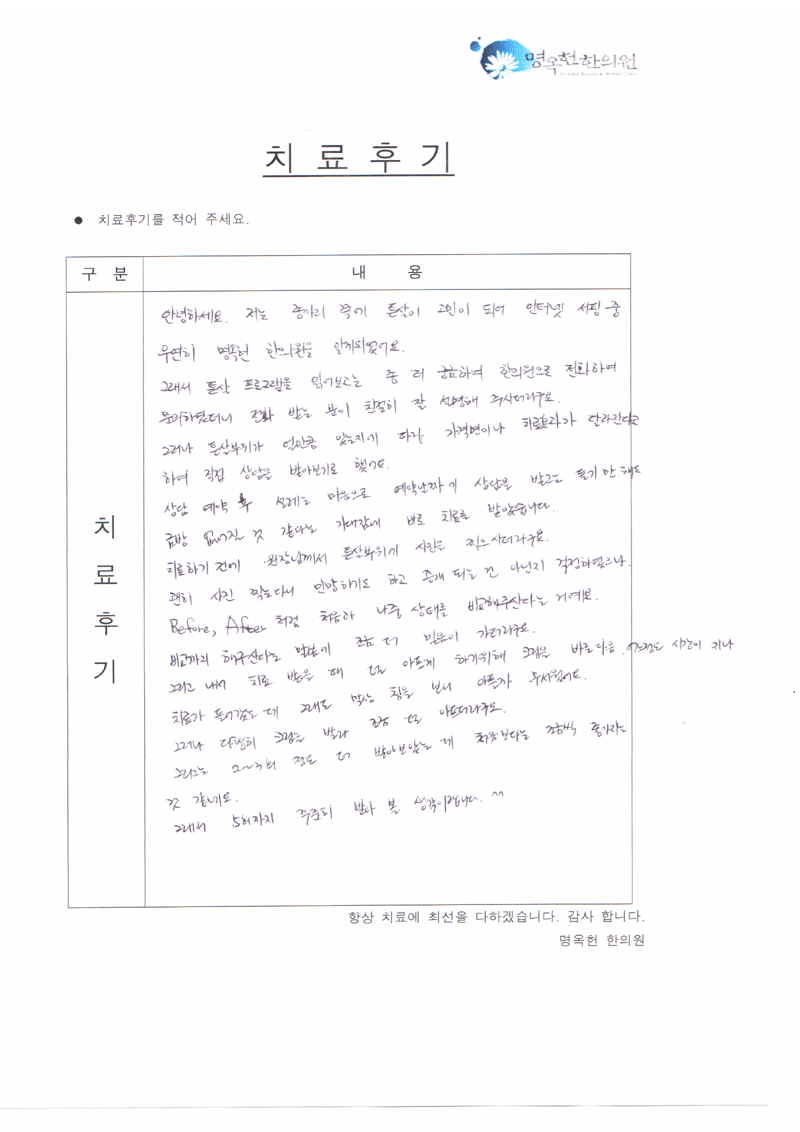 명옥헌한의원
치 료 후 기
● 치료후기를 적어 주세요.
구 분
내 용
치 료 후 기
안녕하세요. 저는 종아리 쪽에 튼살이 고민이 되어 인터넷 서핑 중
우연히 명옥헌 한의원을 알게되었어요.
그래서 튼살 프로그램을 읽어보고는 좀 더 궁금하여 한의원으로 전화하여
문의하였더니 전화 받는 분이 친절히 잘 설명해 주시더라구요.
그러나 튼살부위가 얼만큼 있는지에 따라 가격면이나 치료효과가 달라진다고
하여 직접 상담을 받아보기로 했어요.
상담 예약 후 설레는 마음으로 예약날짜에 상담을 받고는 듣기만 해도
금방 없어질 것 같다는 기대감에 바로 치료를 받았습니다.
치료하기 전에 원장님께서 튼살부위에 사진을 찍으시더라구요.
괜히 사진 찍는다니 민망하기도 하고 공개 되는 건 아닌지 걱정하였으나,
Before, After 처럼 처음과 나중 상태를 비교해주신다는 거예요.
비교까지 해주신다는 말씀에 조금 더 믿음이 가더라구요.
그리고 나서 치료 받을 때 덜 아프게 하기위해 크림을 바른다음, 어느정도 시간이 지나
치료가 들어갔는데 그래도 막상 침을 보니 아플까 무서웠어요.
그러나 다행히 크림을 발라 조금 덜 아프더라구요.
그리고는 2~3회 정도 더 받아보았는데 처음보다는 조금씩 좋아지는
것 같네요.
그래서 5회까지 꾸준히 받아 볼 생각이랍니다. ^^
항상 치료에 최선을 다하겠습니다. 감사 합니다.
명옥헌 한의원